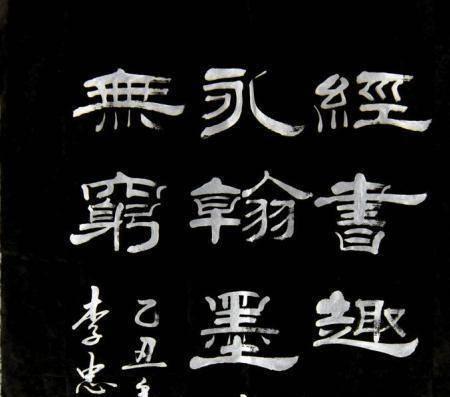 經書趣
永翰墨
無窮
乙丑年
李忠